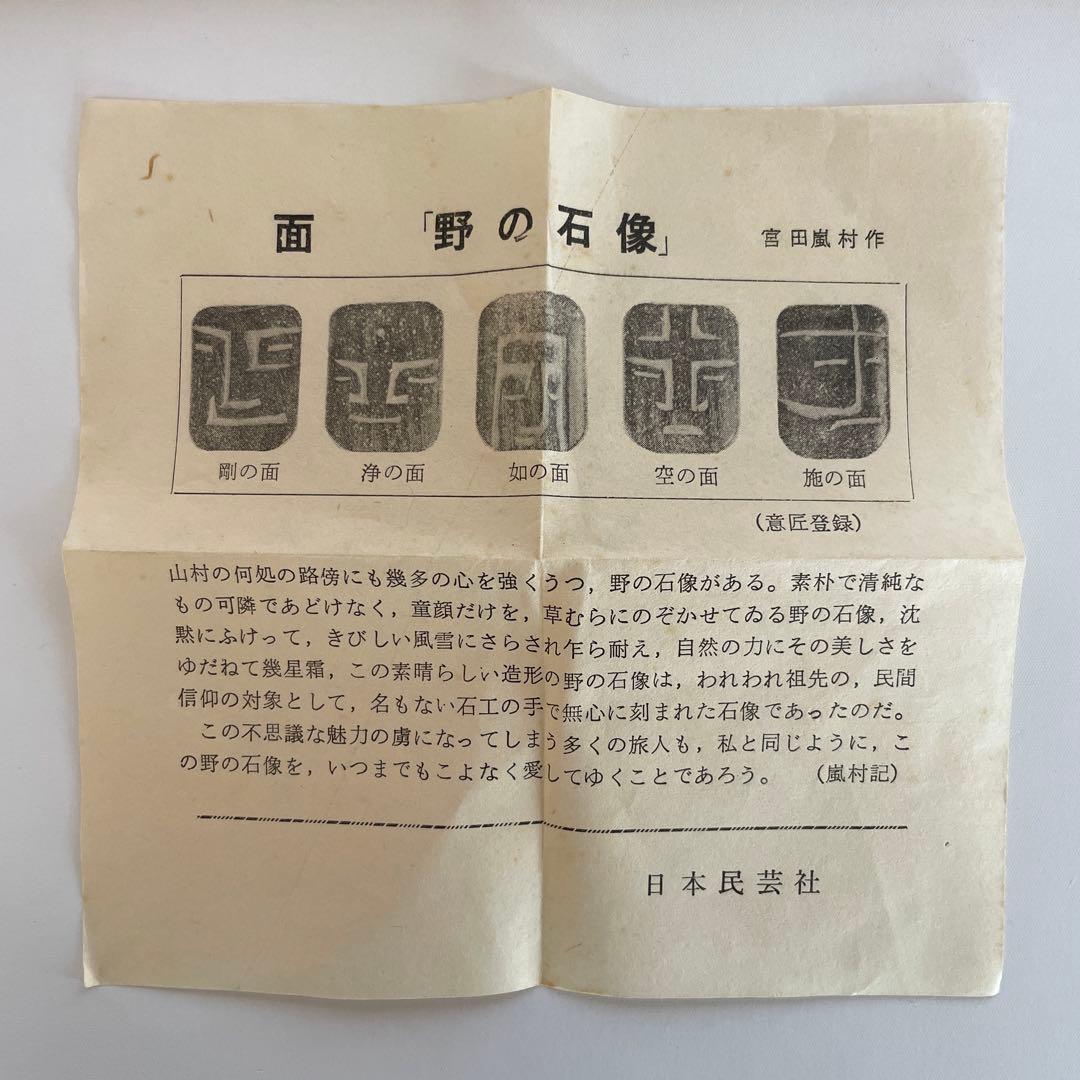 面 「野の石像」 宮田嵐村作
剛の面 浄の面 如の面 空の面 施の面
(意匠登録)
山村の何処の路傍にも幾多の心を強くうつ，野の石像がある。素朴で清純な
もの可隣であどけなく，童顔だけを，草むらにのぞかせてゐる野の石像，沈
黙にふけって，きびしい風雪にさらされ乍ら耐え，自然の力にその美しさを
ゆだねて幾星霜，この素晴らしい造形の野の石像は，われわれ祖先の，民間
信仰の対象として，名もない石工の手で無心に刻まれた石像であったのだ。
この不思議な魅力の虜になってしまう多くの旅人も，私と同じように，こ
の野の石像を，いつまでもこよなく愛してゆくことであろう。 (嵐村記)
日本民芸社